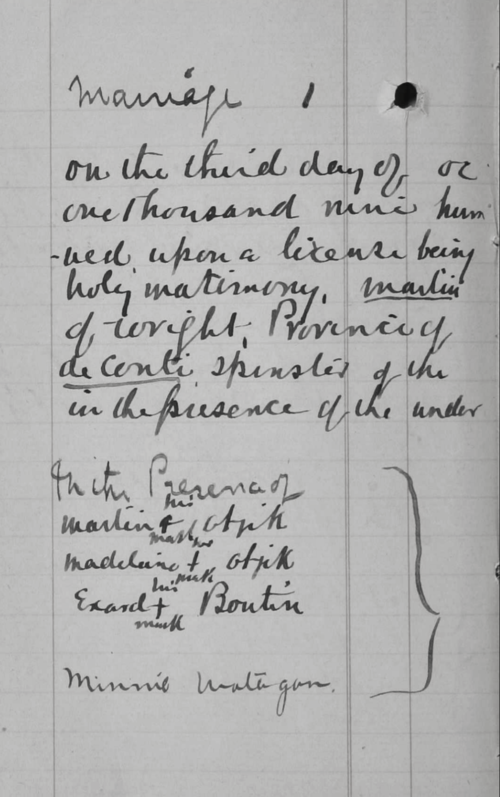 Marriage 1
on the third day of oc
one thousand nine hun
-ned upon a license being
holy matimony, martin
of wright, Province of
de Conti, spinster of the
in the presence of the under
In the Presence of
his
martin + otjik
mark her
madelaine + otjik
his mark
Exard + Boutin
mark
Minnie Matagan.